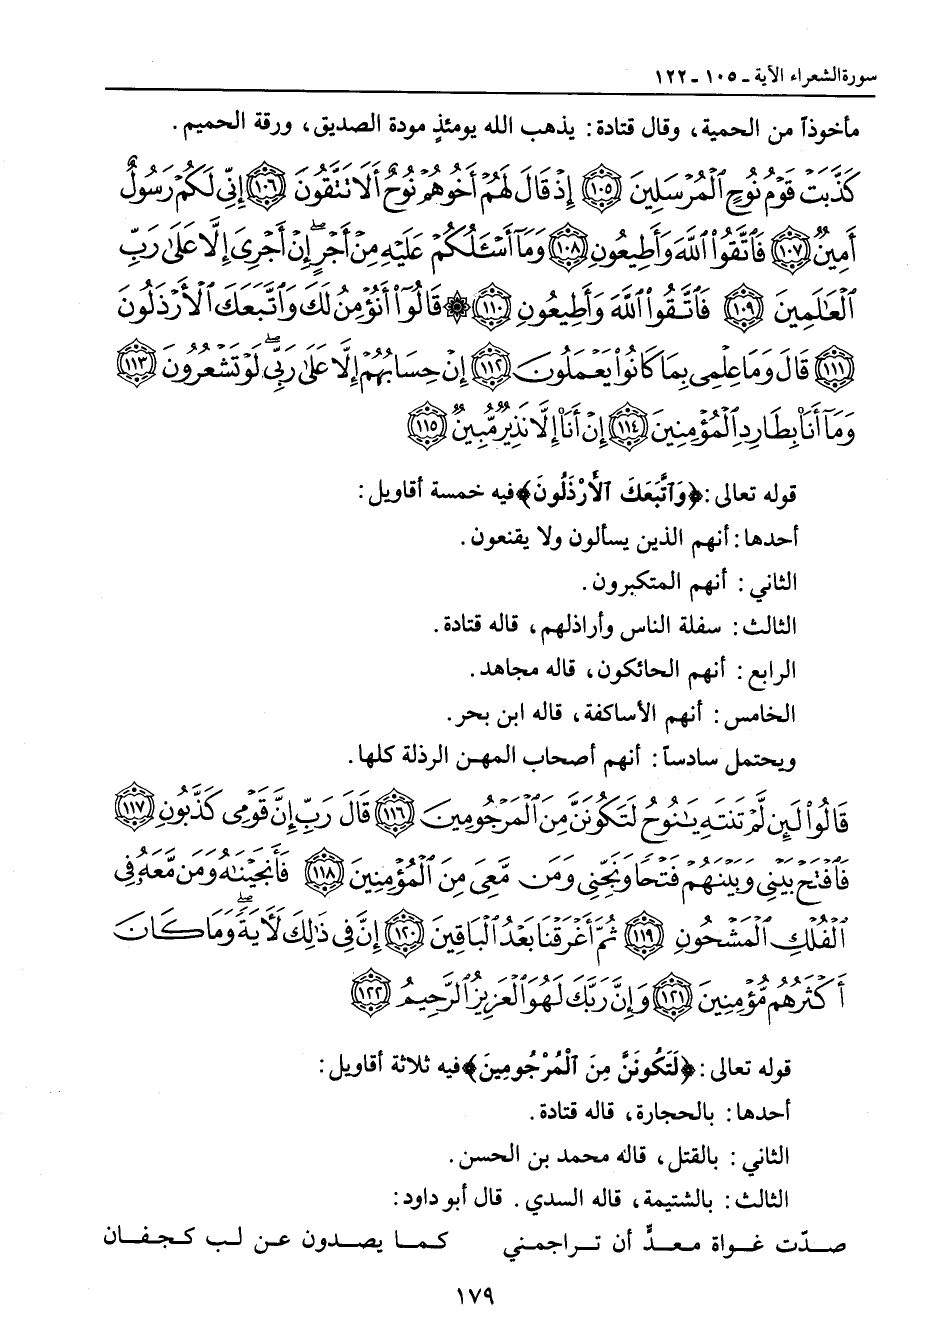 سورة الشعراء الآية ـ ١٠٥ ـ ١٢٢
مأخوذاً من الحمية، وقال قتادة: يذهب الله يومئذٍ مودة الصديق، ورقة الحميم.
كَذَّبَتْ قَوْمُ نُوحٍ ٱلْمُرْسَلِينَ ﴿١٠٥﴾ إِذْ قَالَ لَهُمْ أَخُوهُمْ نُوحٌ أَلَا تَتَّقُونَ ﴿١٠٦﴾ إِنِّى لَكُمْ رَسُولٌ
أَمِينٌ ﴿١٠٧﴾ فَٱتَّقُوا۟ ٱللَّهَ وَأَطِيعُونِ ﴿١٠٨﴾ وَمَآ أَسْـَٔلُكُمْ عَلَيْهِ مِنْ أَجْرٍ ۖ إِنْ أَجْرِىَ إِلَّا عَلَىٰ رَبِّ
ٱلْعَـٰلَمِينَ ﴿١٠٩﴾ فَٱتَّقُوا۟ ٱللَّهَ وَأَطِيعُونِ ﴿١١٠﴾ ۞ قَالُوٓا۟ أَنُؤْمِنُ لَكَ وَٱتَّبَعَكَ ٱلْأَرْذَلُونَ
﴿١١١﴾ قَالَ وَمَا عِلْمِى بِمَا كَانُوا۟ يَعْمَلُونَ ﴿١١٢﴾ إِنْ حِسَابُهُمْ إِلَّا عَلَىٰ رَبِّى ۖ لَوْ تَشْعُرُونَ ﴿١١٣﴾
وَمَآ أَنَا۠ بِطَارِدِ ٱلْمُؤْمِنِينَ ﴿١١٤﴾ إِنْ أَنَا۠ إِلَّا نَذِيرٌ مُّبِينٌ ﴿١١٥﴾
قوله تعالى: ﴿وَٱتَّبَعَكَ ٱلْأَرْذَلُونَ﴾ فيه خمسة أقاويل:
أحدها: أنهم الذين يسألون ولا يقنعون.
الثاني: أنهم المتكبرون.
الثالث: سفلة الناس وأراذلهم، قاله قتادة.
الرابع: أنهم الحائكون، قاله مجاهد.
الخامس: أنهم الأساكفة، قاله ابن بحر.
ويحتمل سادساً: أنهم أصحاب المهن الرذلة كلها.
قَالُوا۟ لَئِن لَّمْ تَنتَهِ يَـٰنُوحُ لَتَكُونَنَّ مِنَ ٱلْمَرْجُومِينَ ﴿١١٦﴾ قَالَ رَبِّ إِنَّ قَوْمِى كَذَّبُونِ ﴿١١٧﴾
فَٱفْتَحْ بَيْنِى وَبَيْنَهُمْ فَتْحًا وَنَجِّنِى وَمَن مَّعِىَ مِنَ ٱلْمُؤْمِنِينَ ﴿١١٨﴾ فَأَنجَيْنَـٰهُ وَمَن مَّعَهُۥ فِى
ٱلْفُلْكِ ٱلْمَشْحُونِ ﴿١١٩﴾ ثُمَّ أَغْرَقْنَا بَعْدُ ٱلْبَاقِينَ ﴿١٢٠﴾ إِنَّ فِى ذَٰلِكَ لَـَٔايَةً ۖ وَمَا كَانَ
أَكْثَرُهُم مُّؤْمِنِينَ ﴿١٢١﴾ وَإِنَّ رَبَّكَ لَهُوَ ٱلْعَزِيزُ ٱلرَّحِيمُ ﴿١٢٢﴾
قوله تعالى: ﴿لَتَكُونَنَّ مِنَ ٱلْمُرْجُومِينَ﴾ فيه ثلاثة أقاويل:
أحدها: بالحجارة، قاله قتادة.
الثاني: بالقتل، قاله محمد بن الحسن.
الثالث: بالشتيمة، قاله السدي. قال أبو داود:
صدّت غواة معدٍّ أن تراجمني كما يصدون عن لب كجفان
١٧٩